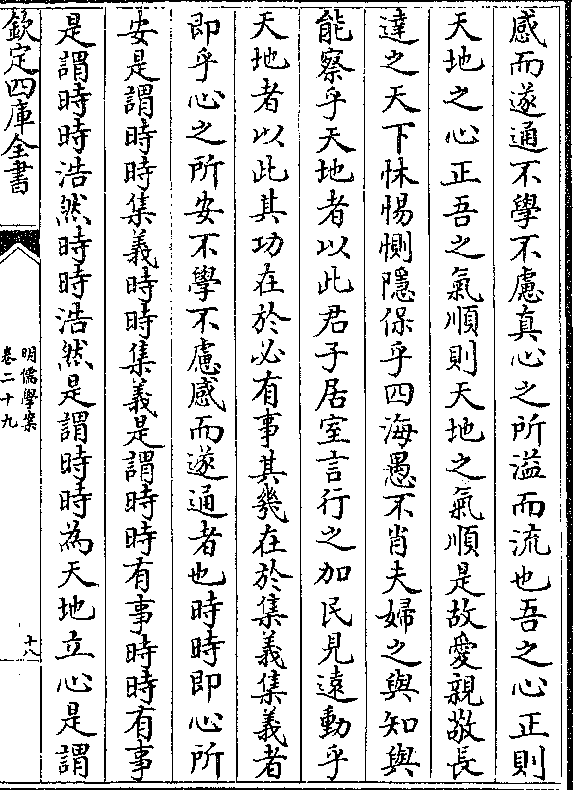 感而遂通不學不慮真心之所溢而流也吾之心正則
天地之心正吾之氣順則天地之氣順是故愛親敬長
達之天下怵惕惻隱保乎四海愚不肖夫婦之與知與
能察乎天地者以此君子居室言行之加民見遠動乎
天地者以此其功在於必有事其幾在於集義集義者
即乎心之所安不學不慮感而遂通者也時時即心所
安是謂時時集義時時集義是謂時時有事時時有事
是謂時時浩然時時浩然是謂時時為天地立心是謂
欽定四庫全書
明儒學案
卷二十九
十八